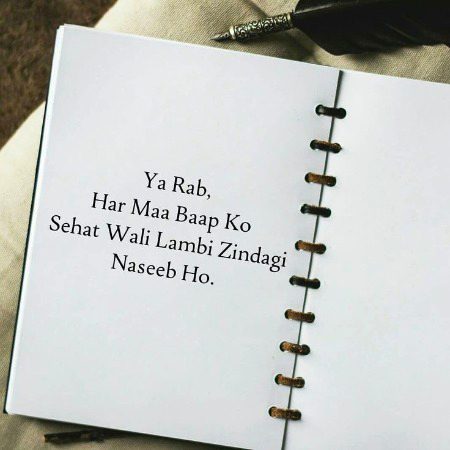 Ya Rab,
Har Maa Baap Ko
Sehat Wali Lambi Zindagi
Naseeb Ho.